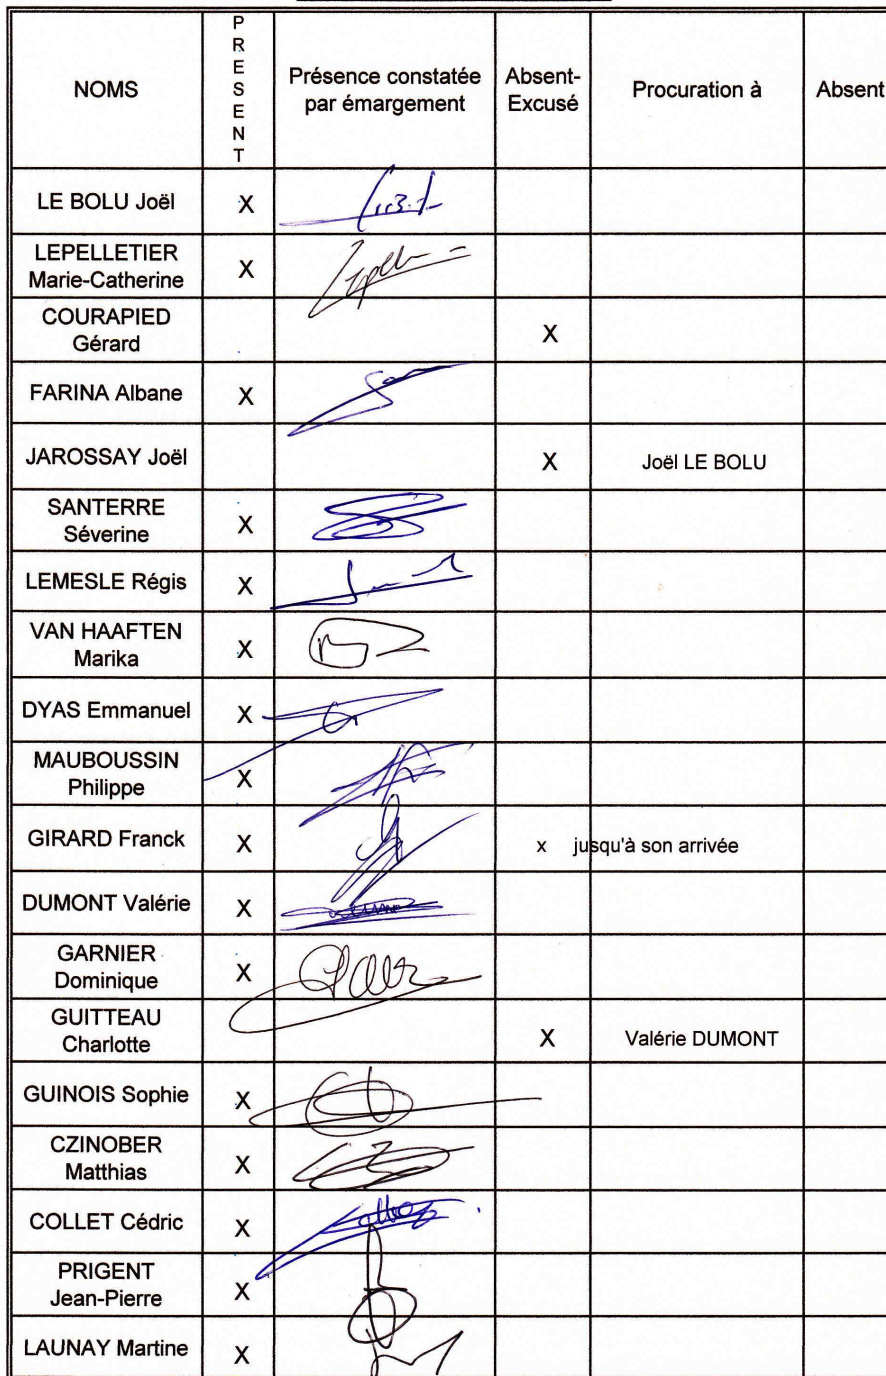 NOMS
PRESENT
Présence constatée
par émargement
Absent-
Excusé
Procuration à
Absent
LE BOLU Joël X
LEPELLETIER
Marie-Catherine X
COURAPIED
Gérard X
FARINA Albane X
JAROSSAY Joël X Joël LE BOLU
SANTERRE
Séverine X
LEMESLE Régis X
VAN HAAFTEN
Marika X
DYAS Emmanuel X
MAUBOUSSIN
Philippe X
GIRARD Franck X x jusqu'à son arrivée
DUMONT Valérie X
GARNIER
Dominique X
GUITTEAU
Charlotte X Valérie DUMONT
GUINOIS Sophie X
CZINOBER
Matthias X
COLLET Cédric X
PRIGENT
Jean-Pierre X
LAUNAY Martine X